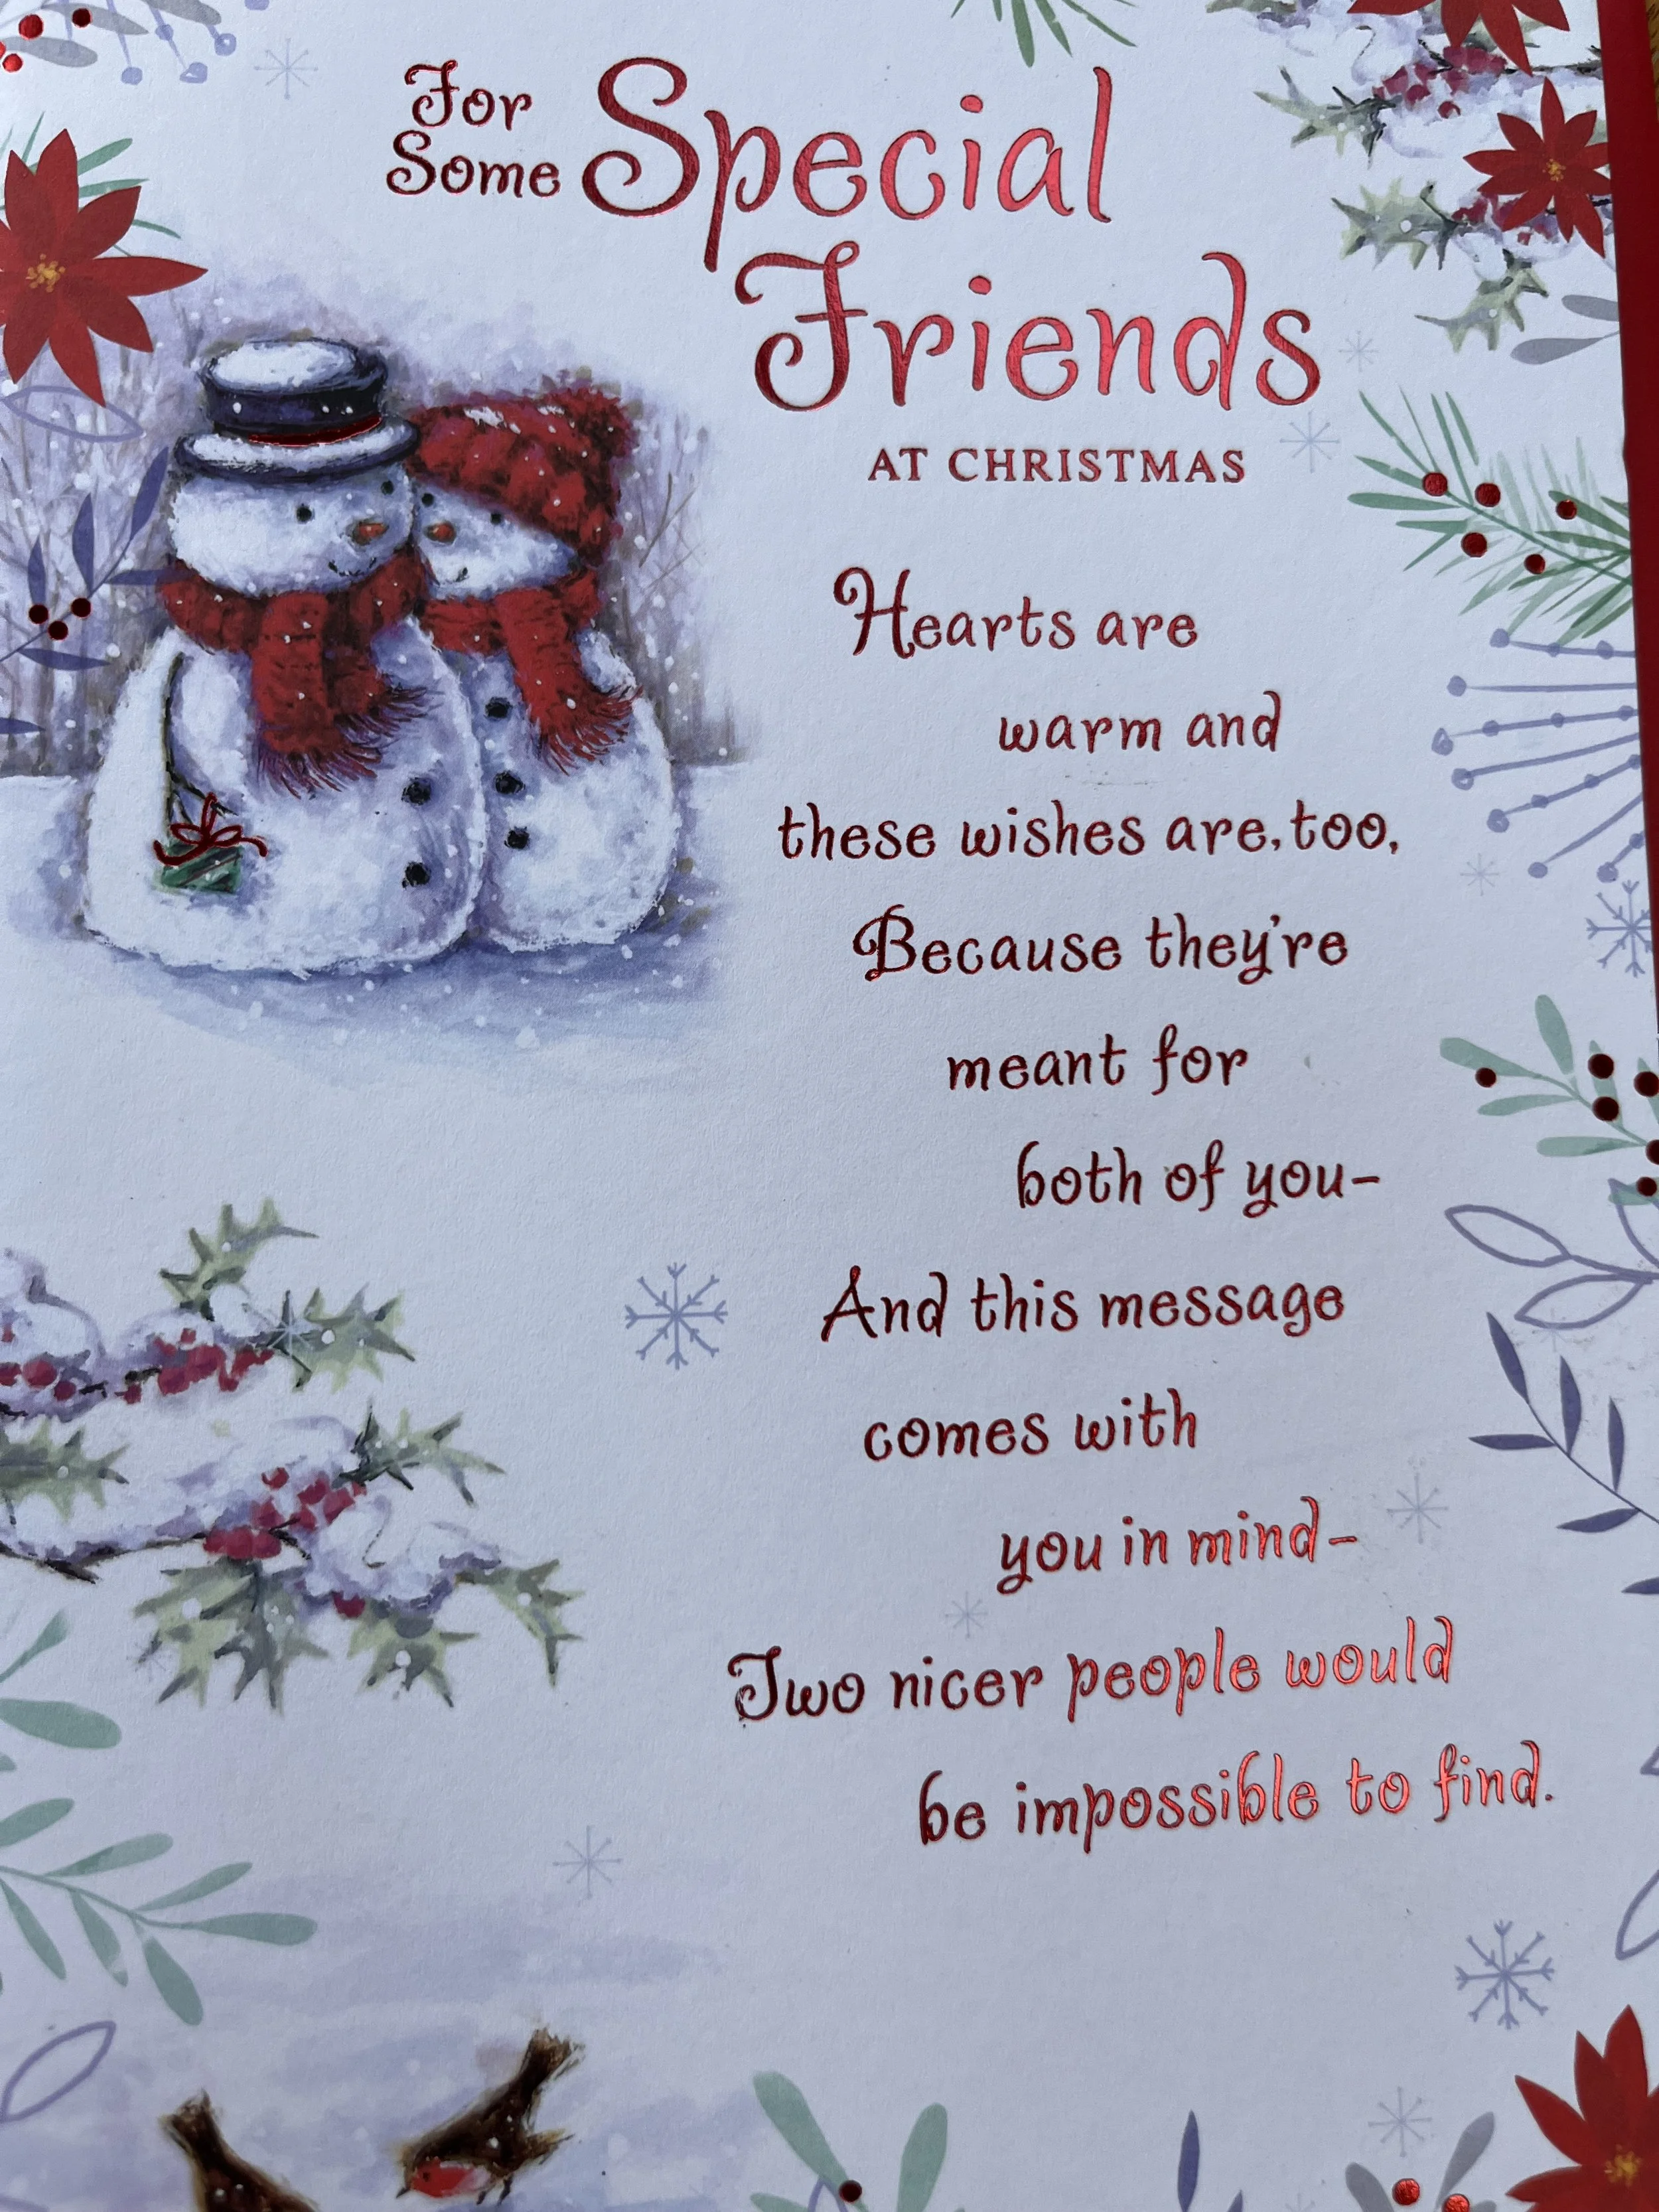 For
Some Special
Friends
AT CHRISTMAS
Hearts are
warm and
these wishes are, too,
Because they're
meant for
both of you-
And this message
comes with
you in mind-
Two nicer people would
be impossible to find.